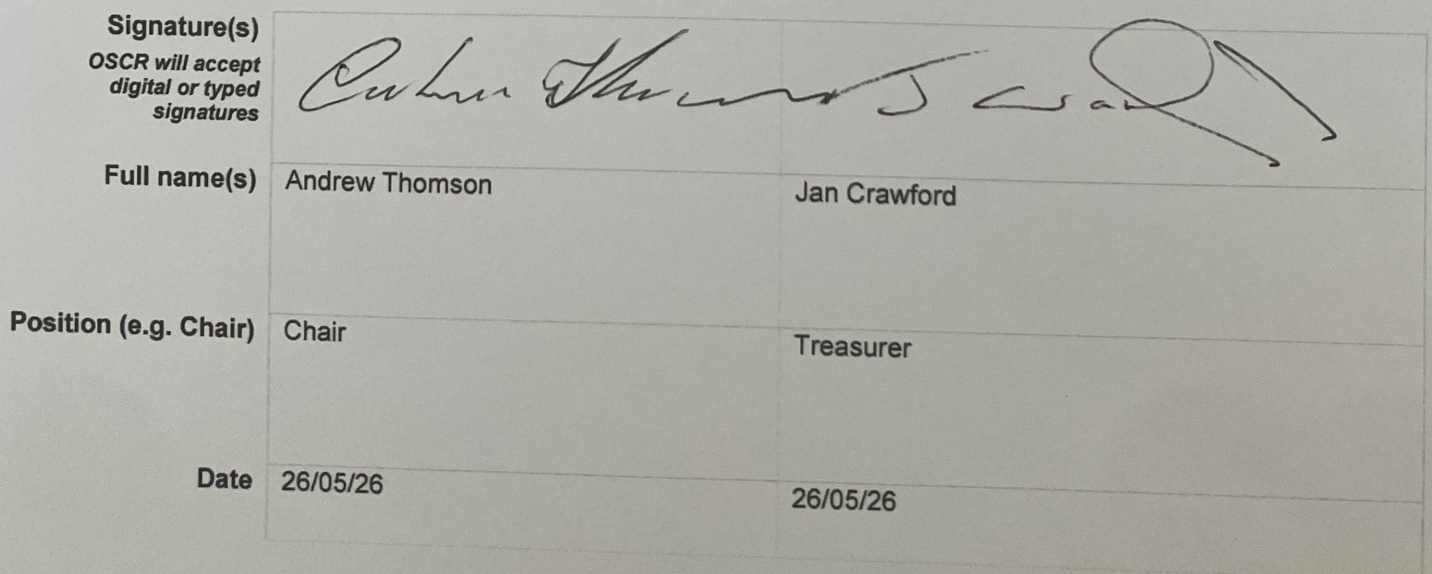 Signature(s)
OSCR will accept
digital or typed
signatures
Full name(s) Andrew Thomson Jan Crawford
Position (e.g. Chair) Chair Treasurer
Date 26/05/26 26/05/26